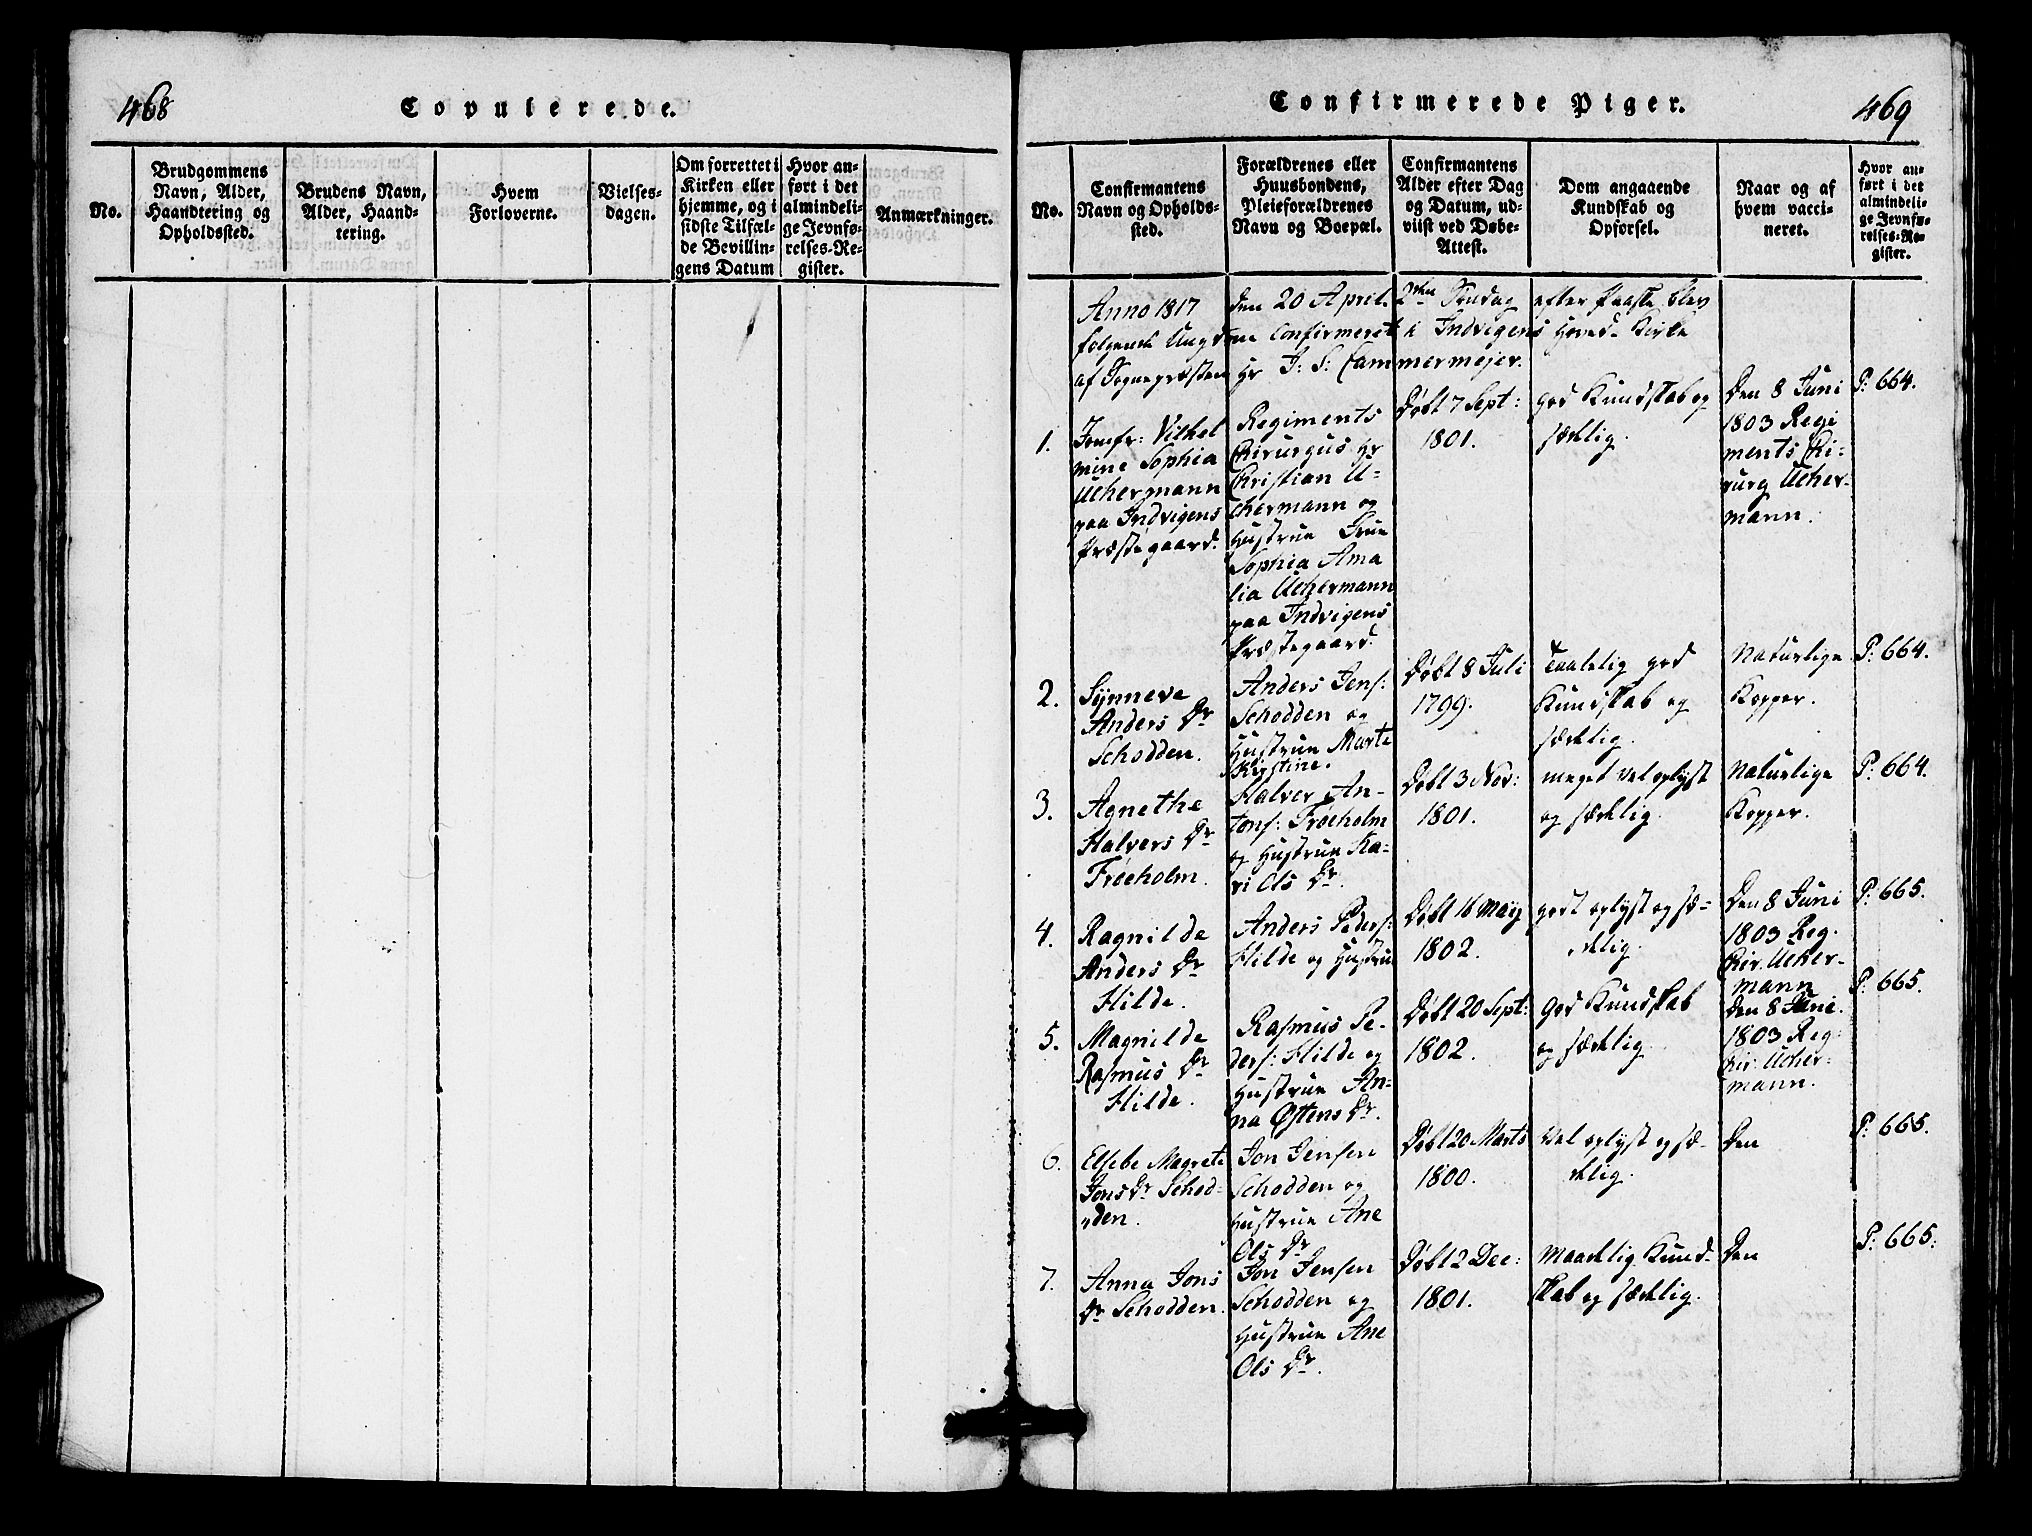 468
Copulerede.
No.
Brudgommens
Navn, Alder,
Haandtering og
Opholdssted.
Brudens Navn,
Alder, Haand-
tering.
Hvem
Forloverne.
Vielses-
dagen.
Om forrettet i
Kirken eller
hjemme, og i
sidste Tilfæl-
de Bevillin-
gens Datum
Hvor an-
ført i det
almindeli-
ge Jevnfø-
relses-Re-
gister.
Anmærkninger.
Confirmerede Piger.
469
No.
Confirmantens
Navn og Opholds-
sted.
Forældrenes eller
Huusbondens,
Pleieforældrenes
Navn og Boepæl.
Confirmantens
Alder efter Dag
og Datum, ud-
viist ved Døbe-
Attest.
Dom angaaende
Kundskab og
Opførsel.
Naar og af
hvem vacci-
neret.
Hvor an-
ført i det
almindeli-
ge Jevnfø-
relses-Re-
gister.
Anno 1817 den 20 April 2den Søndag efter Paaske blev
følgende Ungdom Confirmeret i Indvigens Hoved-Kirke
af Sognepræsten Hr J: S: Cammermejer.
1.
Jomfr: Vilhel
mine Sophia
Uchermann
paa Indvigens
Præstegaard.
Regiments
Chirurgus Hr
Christian U-
chermann og
Hustrue Frue
Sophia Ama
lia Uchermann
paa Indvigens
Præstegaard.
Døbt 7 Sept:
1801.
god Kundskab og
sædelig.
Den 8 Juni
1803 Regi
ments Chi-
rurg Ucher-
mann.
P: 664.
2.
Synneve
Anders Dr
Schodden.
Anders Jens:
Schodden og
Hustrue Marte
Kirstine.
Døbt 8 Juli
1799.
Taalelig god
Kundskab og
sædelig.
Naturlige
Kopper.
P: 664.
3.
Agnethe
Halvers Dr
Frøeholm.
Halver An-
tons: Frøeholm
og Hustrue Ka-
ri Ols Dr.
Døbt 3 Nov:
1801.
meget vel oplyst
og sædelig.
Naturlige
Kopper.
P: 664.
4.
Ragnilde
Anders Dr
Hilde.
Anders Peders:
Hilde og Hustrue
Døbt 16 Maij
1802.
godt oplyst og sæ-
delig.
Den 8 Juni
1803 Reg.
Chir. Ucher-
mann
P: 665.
5.
Magnilde
Rasmus Dr
Hilde.
Rasmus Pe-
ders: Hilde og
Hustrue An-
na Østens Dr.
Døbt 20 Sept:
1802.
God Kundskab
og sædelig
Den 8 Juni.
1803 Reg:
Chir. Ucher-
mann.
P: 665.
6.
Elsebe Magrete
Jons Dr Schod-
den.
Jon Jensen
Schodden og
Hustrue Ane
Ols Dr
Døbt 20 Marts
1800.
Vel oplyst og sæ-
delig.
Den
P: 665.
7.
Anna Jons
Dr Schodden.
Jon Jensen
Schodden og
Hustrue Ane
Ols Dr.
Døbt 2 Dec:
1801.
Maadelig Kund-
skab og sædelig.
Den
P: 665.